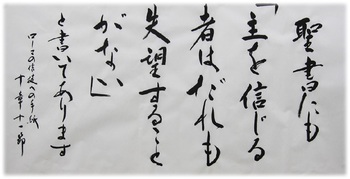 聖書にも
「主を信じる
者はだれも
失望すること
がない」
と書いてあります
ローマの信徒への手紙
十章十一節